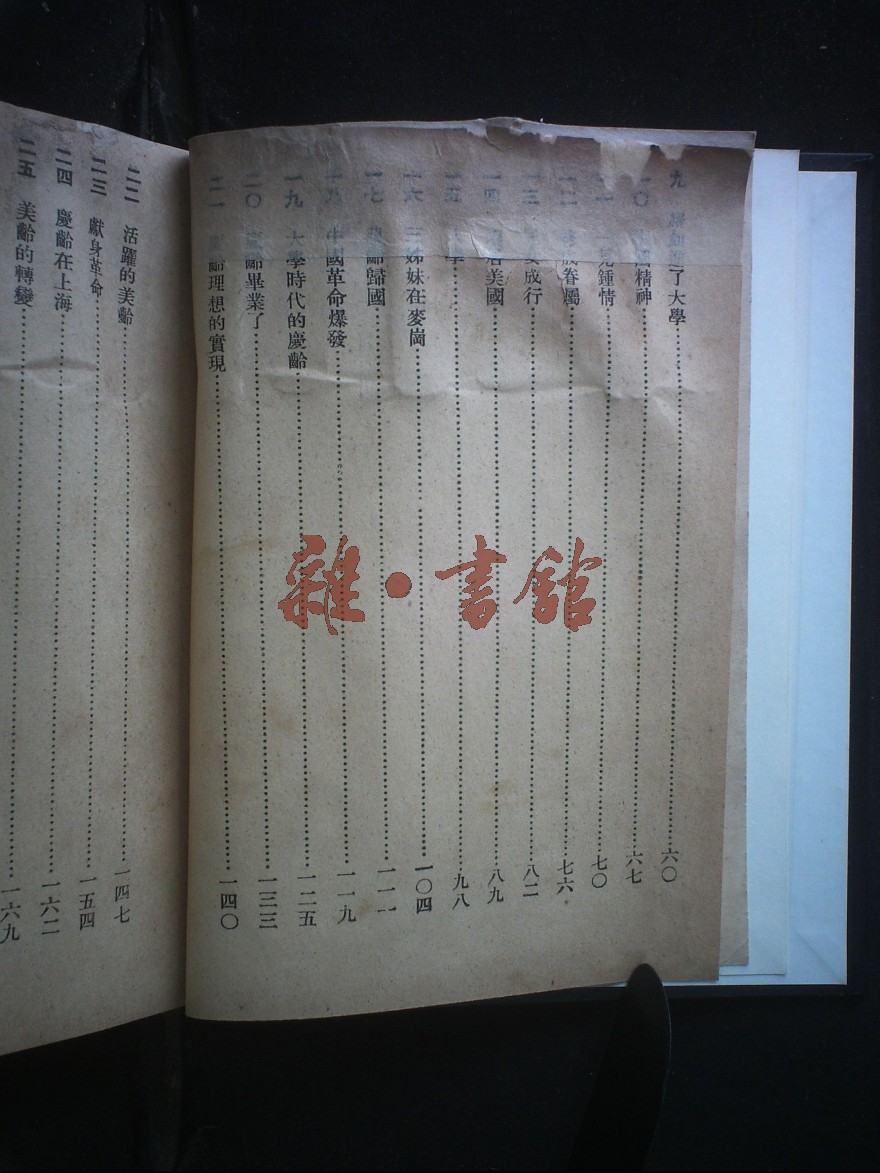 九 了大學 六〇
一〇 精神 六七
鍾情 七〇
一二 眷屬 七六
一三 成行 八二
一四 美國 八九
一五 學 九八
一六 三姊妹在麥崗 一〇四
一七 齡歸國 一一一
一八 中國革命爆發 一一九
一九 大學時代的慶齡 一二五
二〇 齡畢業了 一三三
二一 齡理想的實現 一四〇
二二 活躍的美齡 一四七
二三 獻身革命 一五四
二四 慶齡在上海 一六二
二五 美齡的轉變 一六九
雜·書館